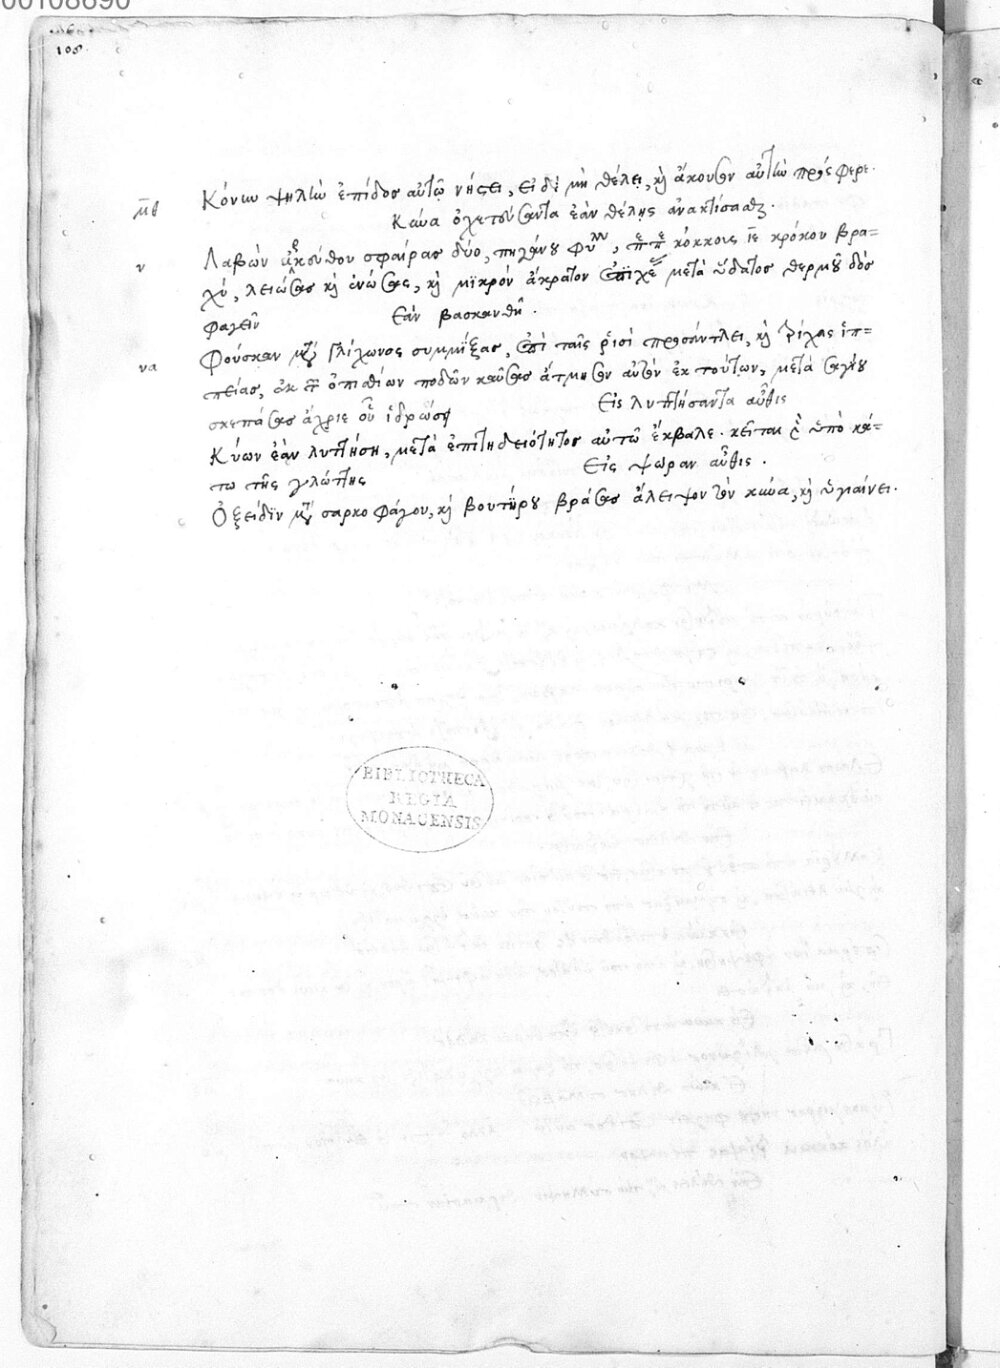 00108690
108
Κόνιν ψηλὴν ἐπίδος αὐτῷ νήστει, εἰ δὲ μὴ θέλει, καὶ ἄκουσαν αὐτὴν πρόσφερε.
μθ
Κύνα ὀχετούσαντα ἐὰν θέλῃς ἀνακτίσασθαι.
ν Λαβὼν σφαίρας δύο, πηγάνου φύλλα, κόκκους ιε κρόκου βρα=
χύ, λειώσας καὶ ἑνώσας, καὶ μικρὸν ἄκρατον μετὰ ὕδατος θερμοῦ δὸς
φαγεῖν Ἐὰν βασκανθῇ.
να Φούσκαν μετὰ γλίχωνος συμμίξας, ἐπὶ ταῖς ῥισὶ προσάντλει, καὶ τρίχας ἱπ=
πείας, ἐκ τῶν ὀπισθίων ποδῶν καύσας ἄτμησον αὐτὸν ἐκ τούτων, μετὰ σάγου
σκεπάσας ἄχρις οὗ ἱδρώσῃ Εἰς λυττήσαντα αὖθις
Κύων ἐὰν λυττήσῃ, μετὰ ἐπιτηδειότητος αὐτῷ ἔκβαλε. κεῖται ὑπὸ κά=
τω τῆς γλώττης Εἰς ψώραν αὖθις.
Ὀξείδιν μετὰ σαρκοφάγου, καὶ βουτύρου βράσας ἄλειψον τὸν κύνα, καὶ ὑγιαίνει.
BIBLIOTHECA
REGIA
MONACENSIS